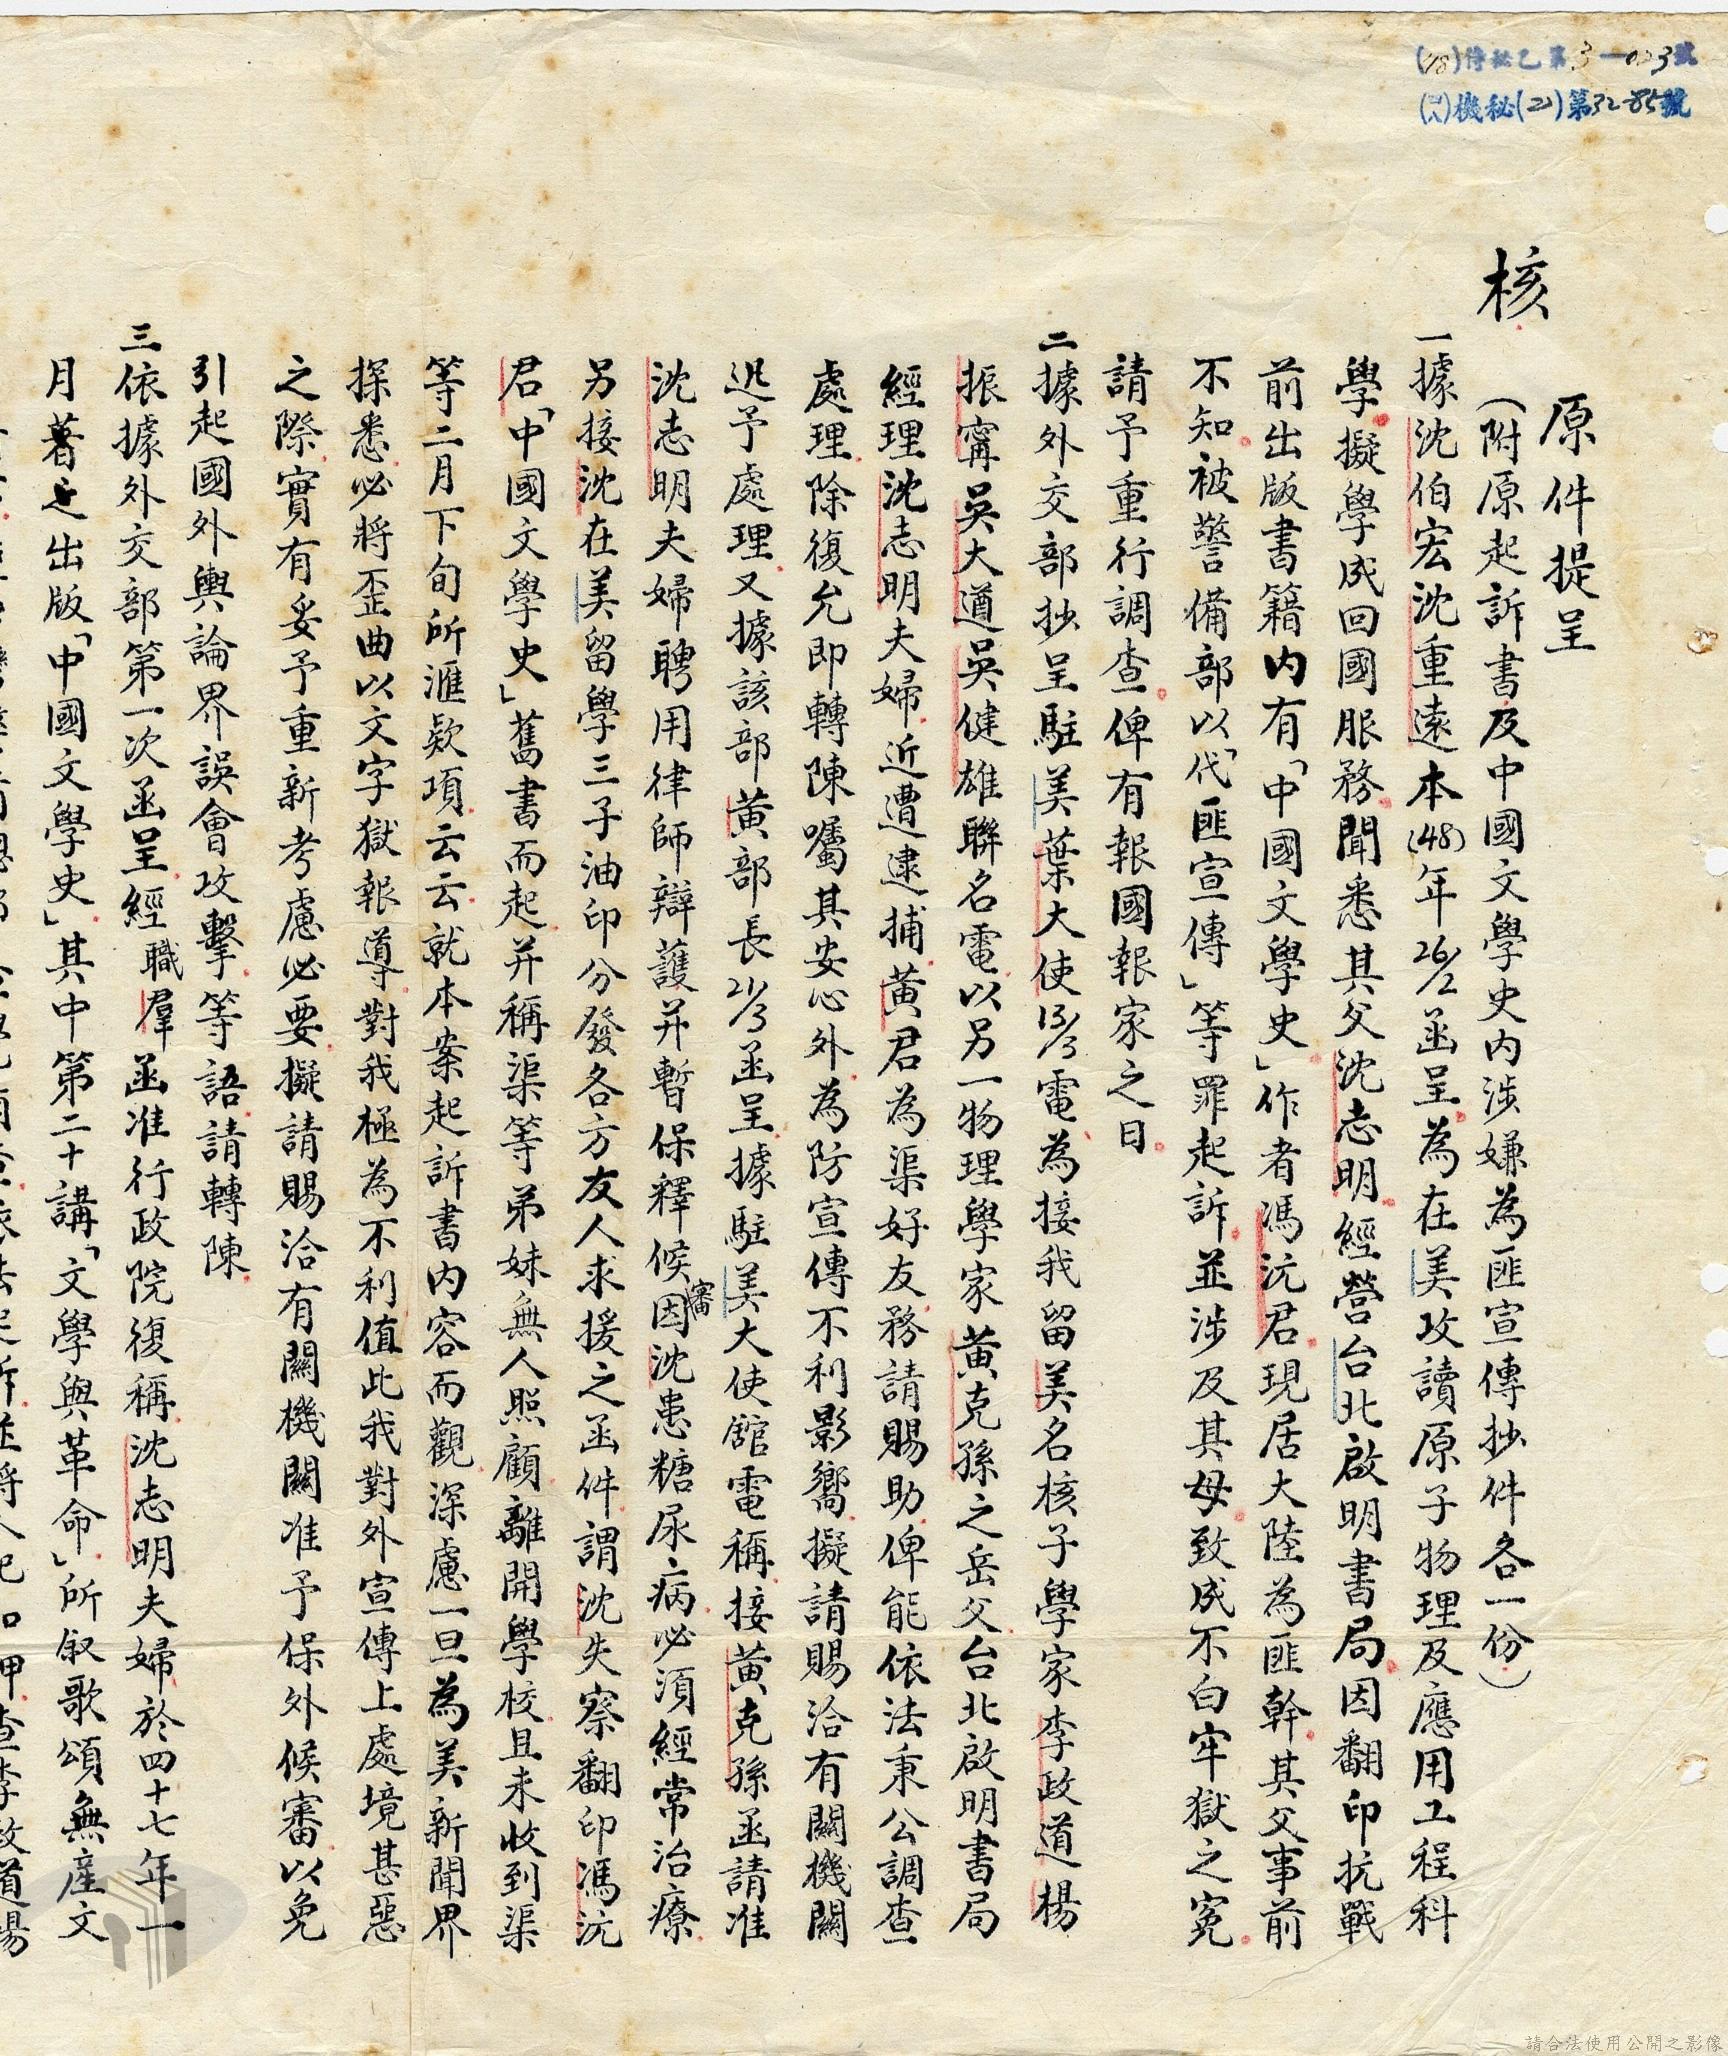 (48)侍秘乙第3-023號
(四八)機秘(乙)第32-85號
核
原件提呈
(附原起訴書及中國文學史內涉嫌為匪宣傳抄件各一份)
一據沈伯宏沈重遠本(48)年26/2函呈為在美攻讀原子物理及應用工程科
學擬學成回國服務聞悉其父沈志明經營台北啟明書局因翻印抗戰
前出版書籍內有「中國文學史」作者馮沅君現居大陸為匪幹其父事前
不知被警備部以「代匪宣傳」等罪起訴並涉及其母致成不白牢獄之冤
請予重行調查俾有報國報家之日
二據外交部抄呈駐美葉大使13/3電為接我留美名核子學家李政道楊
振寧吳大猷吳健雄聯名電以另一物理學家黃克孫之岳父台北啟明書局
經理沈志明夫婦近遭逮捕黃君為渠好友務請賜助俾能依法秉公調查
處理除復允即轉陳囑其安心外為防宣傳不利影響擬請賜洽有關機關
迅予處理又據該部黃部長21/3函呈據駐美大使館電稱接黃克孫函請准
沈志明夫婦聘用律師辯護并暫保釋候審因沈患糖尿病必須經常治療
另接沈在美留學三子油印分發各方友人求援之函件謂沈失察翻印馮沅
君「中國文學史」舊書而起并稱渠等弟妹無人照顧離開學校且未收到渠
等二月下旬所滙欵項云云就本案起訴書內容而觀深慮一旦為美新聞界
探悉必將歪曲以文字獄報導對我極為不利值此我對外宣傳上處境甚惡
之際實有妥予重新考慮必要擬請賜洽有關機關准予保外候審以免
引起國外輿論界誤會攻擊等語請轉陳
三依據外交部第一次函呈經職羣函准行政院復稱沈志明夫婦於四十七年一
月著手出版「中國文學史」其中第二十講「文學與革命」所敘歌頌無產文
請合法使用公開之影像